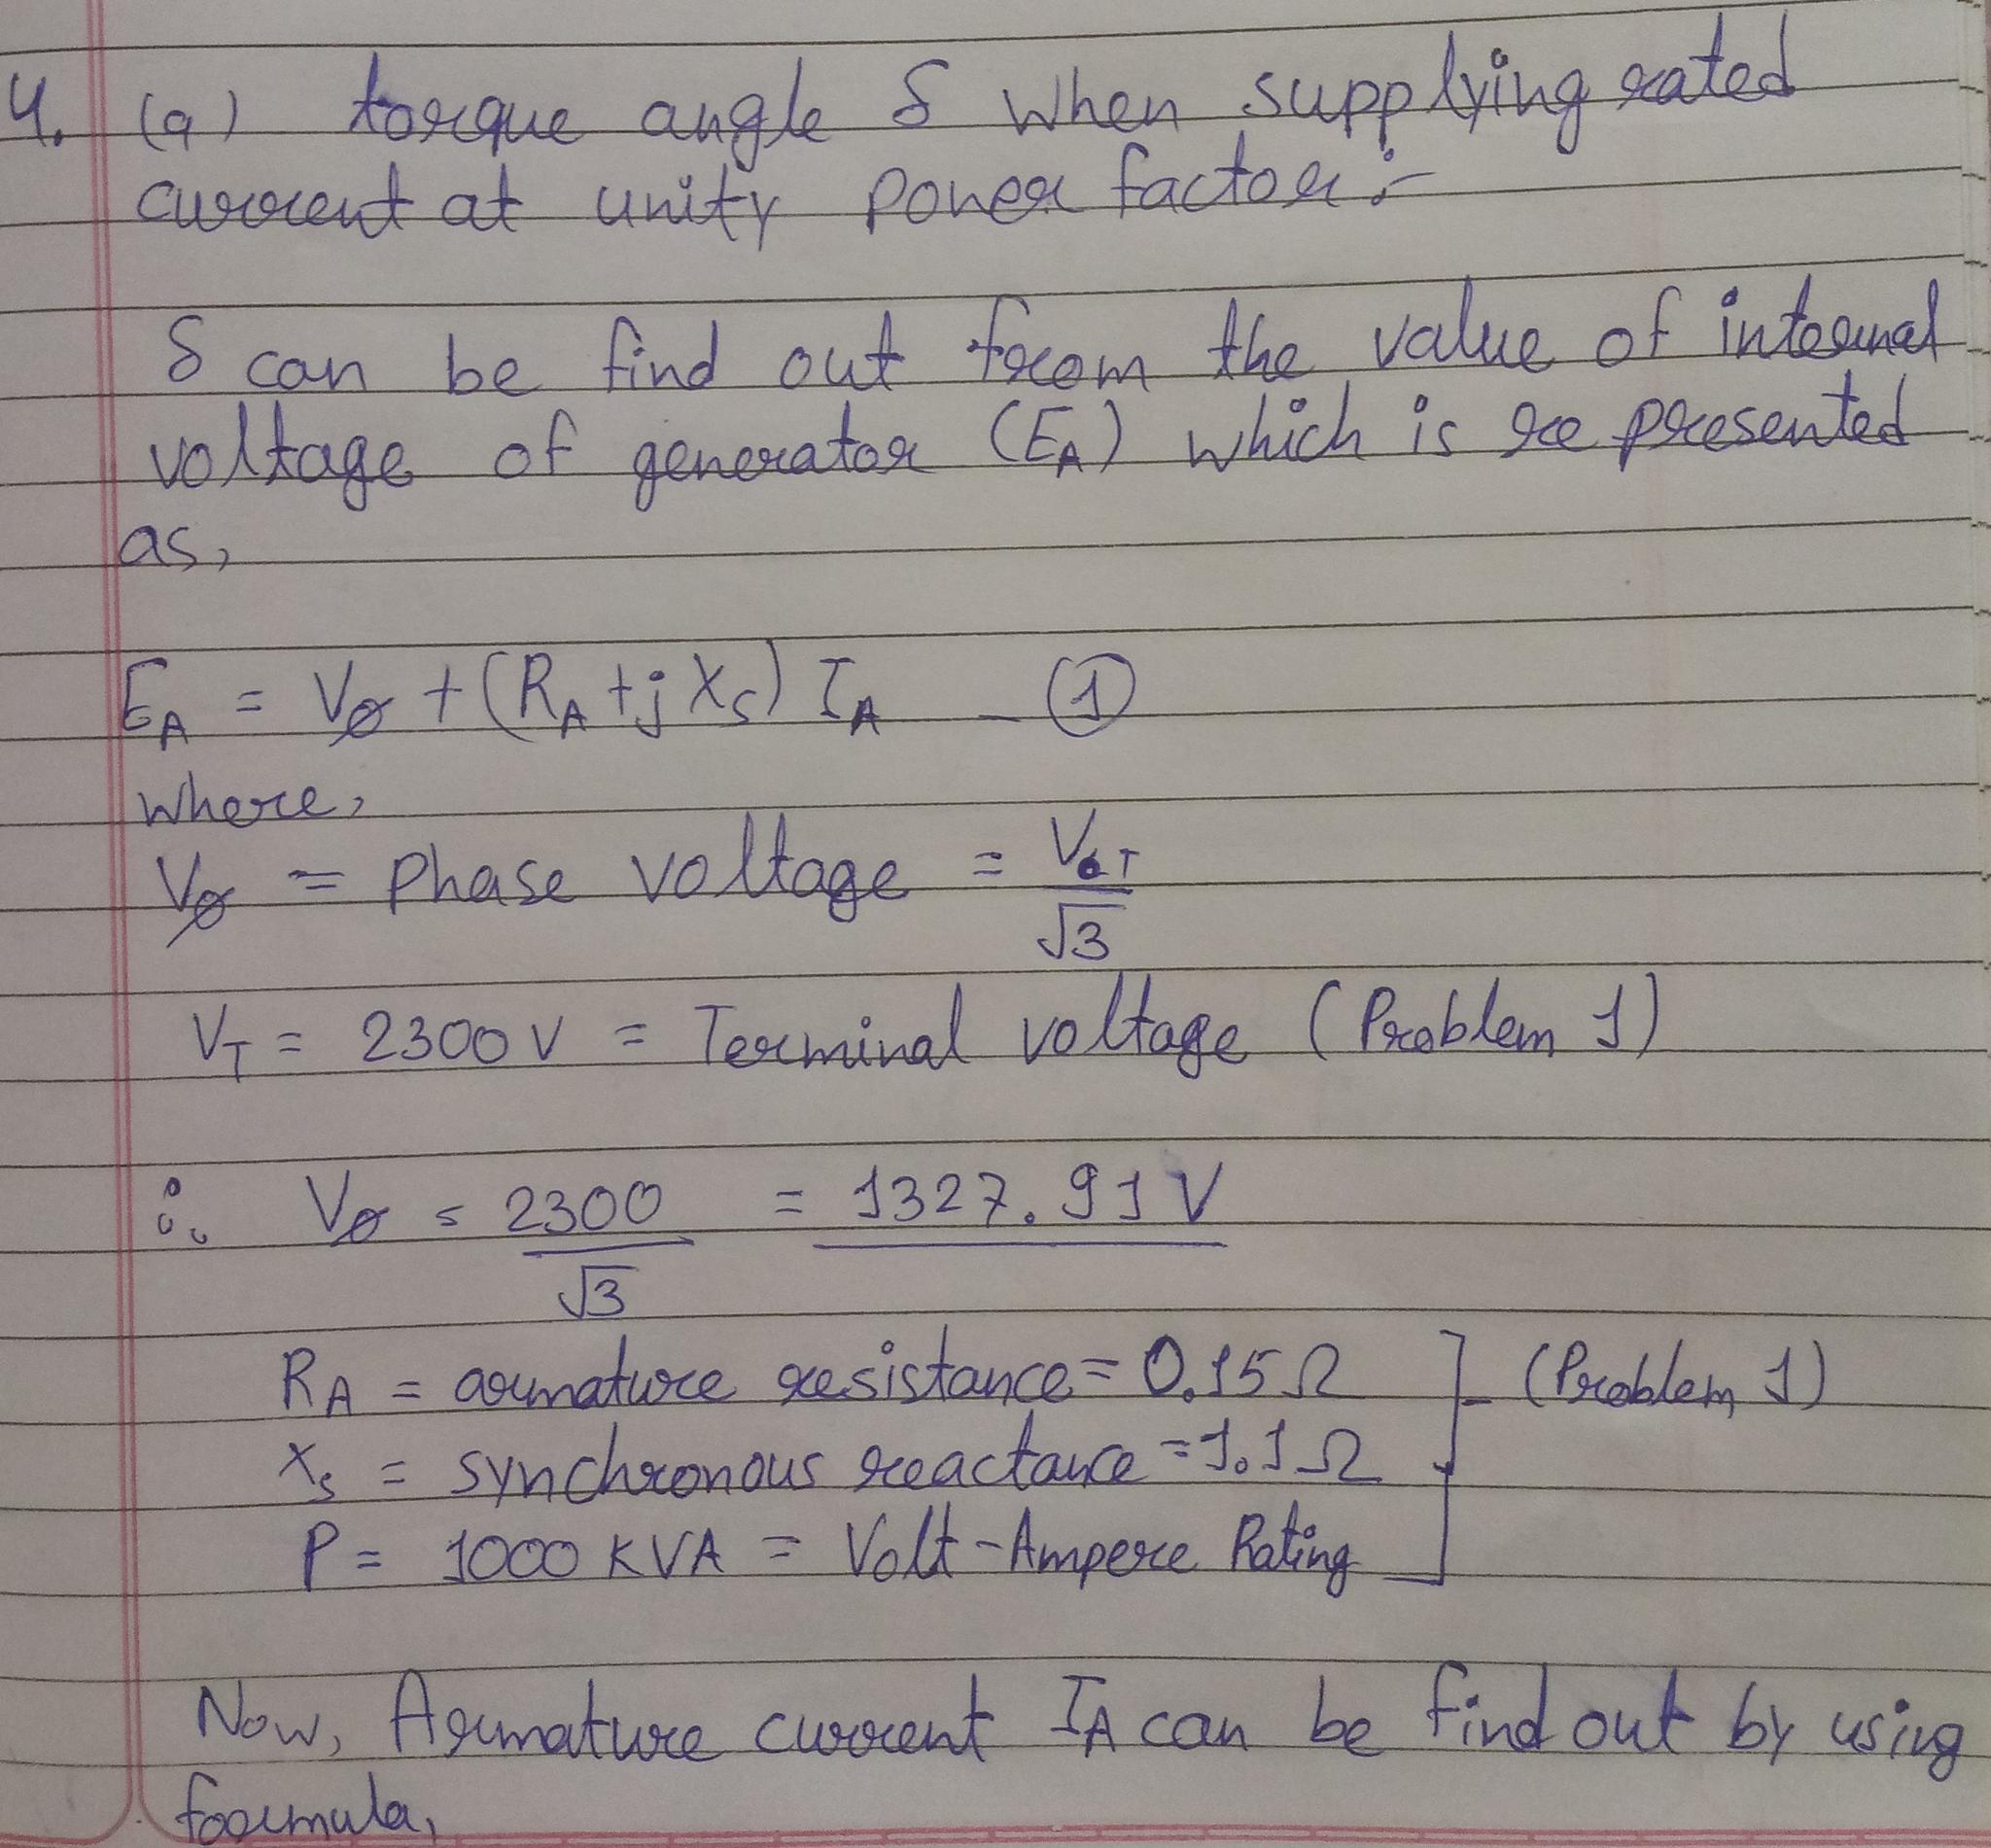 4. (a) torque angle δ when supplying rated
current at unity power factor :-
δ can be find out from the value of internal
voltage of generator (EA) which is represented
as,
EA = Vø + (RA + jXs) IA - ①
where,
Vø = Phase voltage = VT / √3
VT = 2300 V = Terminal voltage (Problem 1)
∴ Vø = 2300 / √3 = 1327.91 V
RA = armature resistance = 0.15 Ω
Xs = synchronous reactance = 1.1 Ω ] - (Problem 1)
P = 1000 KVA = Volt-Ampere Rating
Now, Armature current IA can be find out by using
formula,